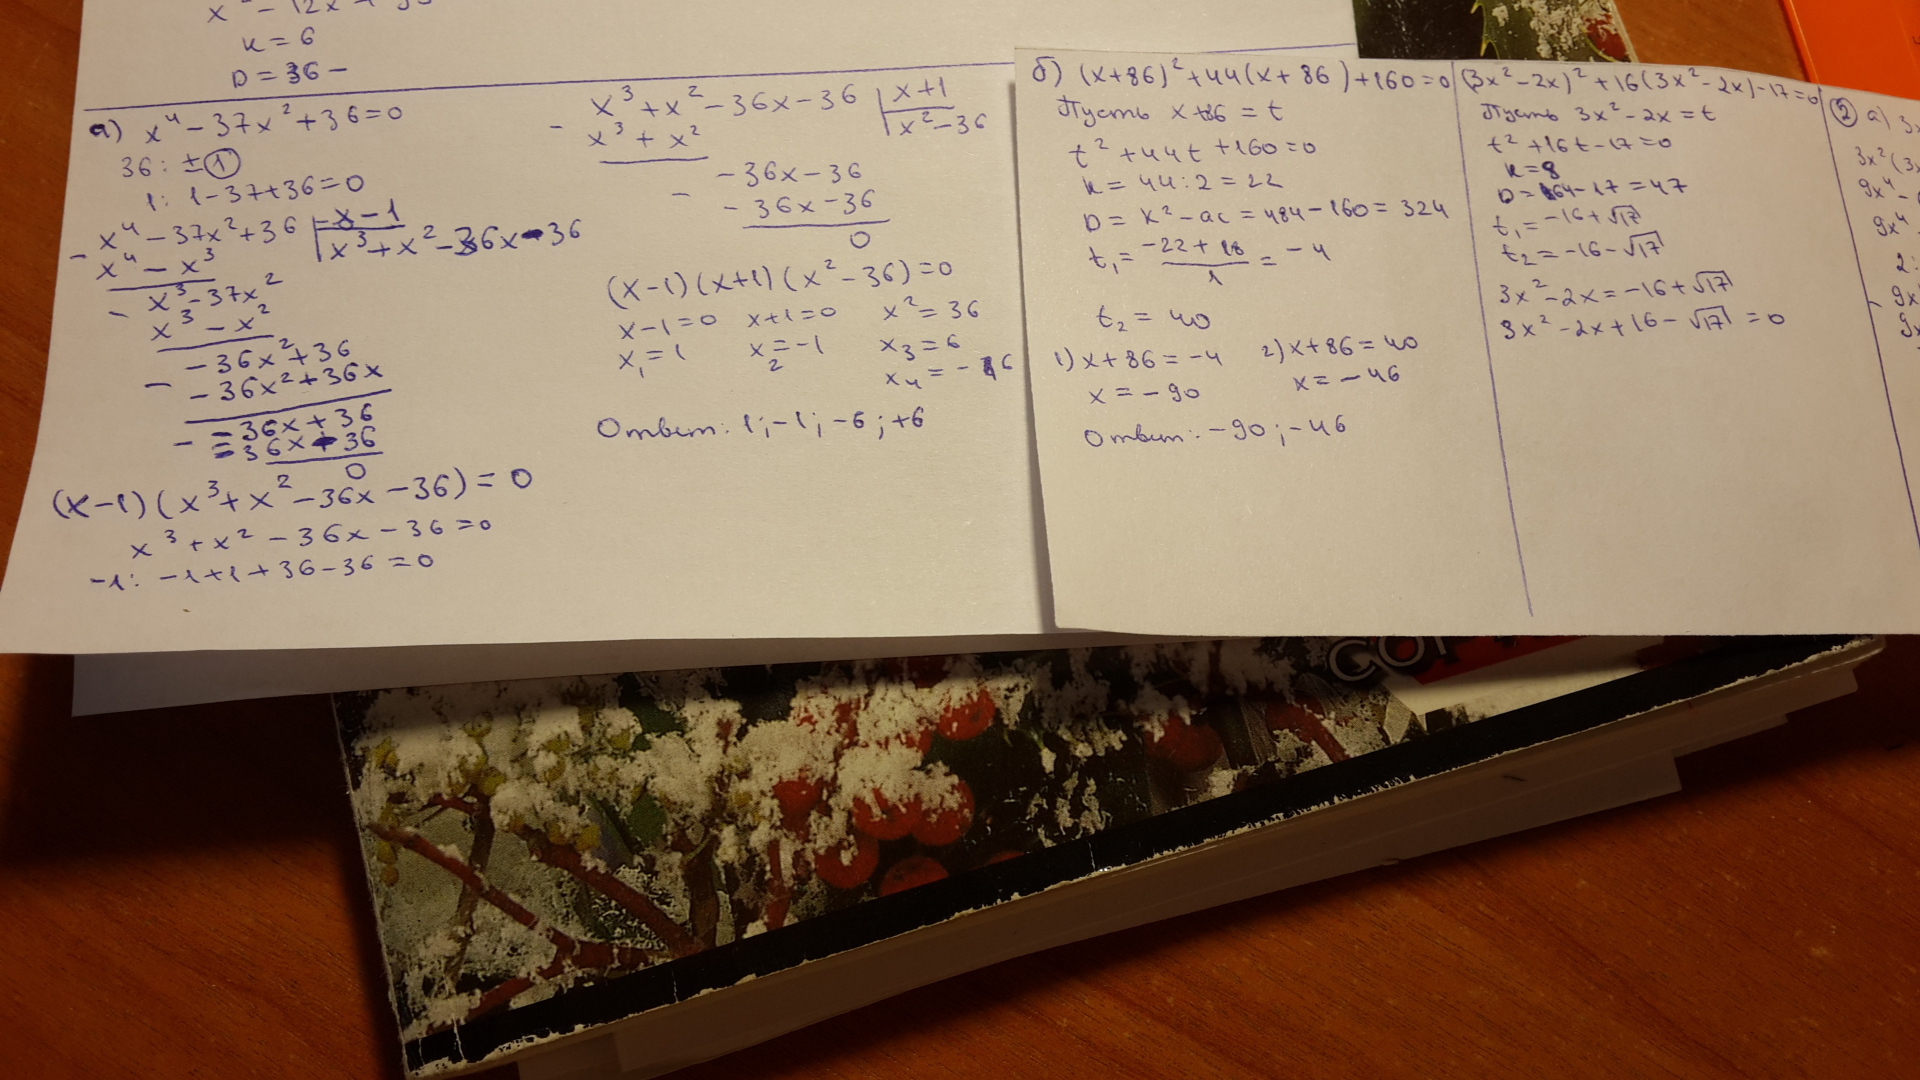 к = 6
D = 36 –
а) x⁴ – 37x² + 36 = 0
36: ± 1
1: 1 – 37 + 36 = 0
x⁴ – 37x² + 36 | x – 1
x⁴ – x³ | x³ + x² – 36x – 36
x³ – 37x²
x³ – x²
– 36x² + 36
– 36x² + 36x
– 36x + 36
– 36x + 36
0
(x – 1)(x³ + x² – 36x – 36) = 0
x³ + x² – 36x – 36 = 0
–1: –1 + 1 + 36 – 36 = 0
x³ + x² – 36x – 36 | x + 1
x³ + x² | x² – 36
– 36x – 36
– 36x – 36
0
(x – 1)(x + 1)(x² – 36) = 0
x – 1 = 0 x + 1 = 0 x² = 36
x₁ = 1 x₂ = –1 x₃ = 6
x₄ = – 6
Ответ: 1; –1; –6; +6
б) (x + 86)² + 44(x + 86) + 160 = 0
Пусть x + 86 = t
t² + 44t + 160 = 0
к = 44 : 2 = 22
D = к² – ac = 484 – 160 = 324
t₁ = (–22 + 18)/1 = – 4
t₂ = 40
1) x + 86 = –4 2) x + 86 = 40
x = – 90 x = – 46
Ответ: – 90; – 46
(3x² – 2x)² + 16(3x² – 2x) – 17 = 0
Пусть 3x² – 2x = t
t² + 16t – 17 = 0
к = 8
D = 64 – 17 = 47
t₁ = –16 + √17
t₂ = –16 – √17
3x² – 2x = –16 + √17
3x² – 2x + 16 – √17 = 0
② а) 3x
3x²(3x
9x⁴ –
9x⁴
2:
9x
9x